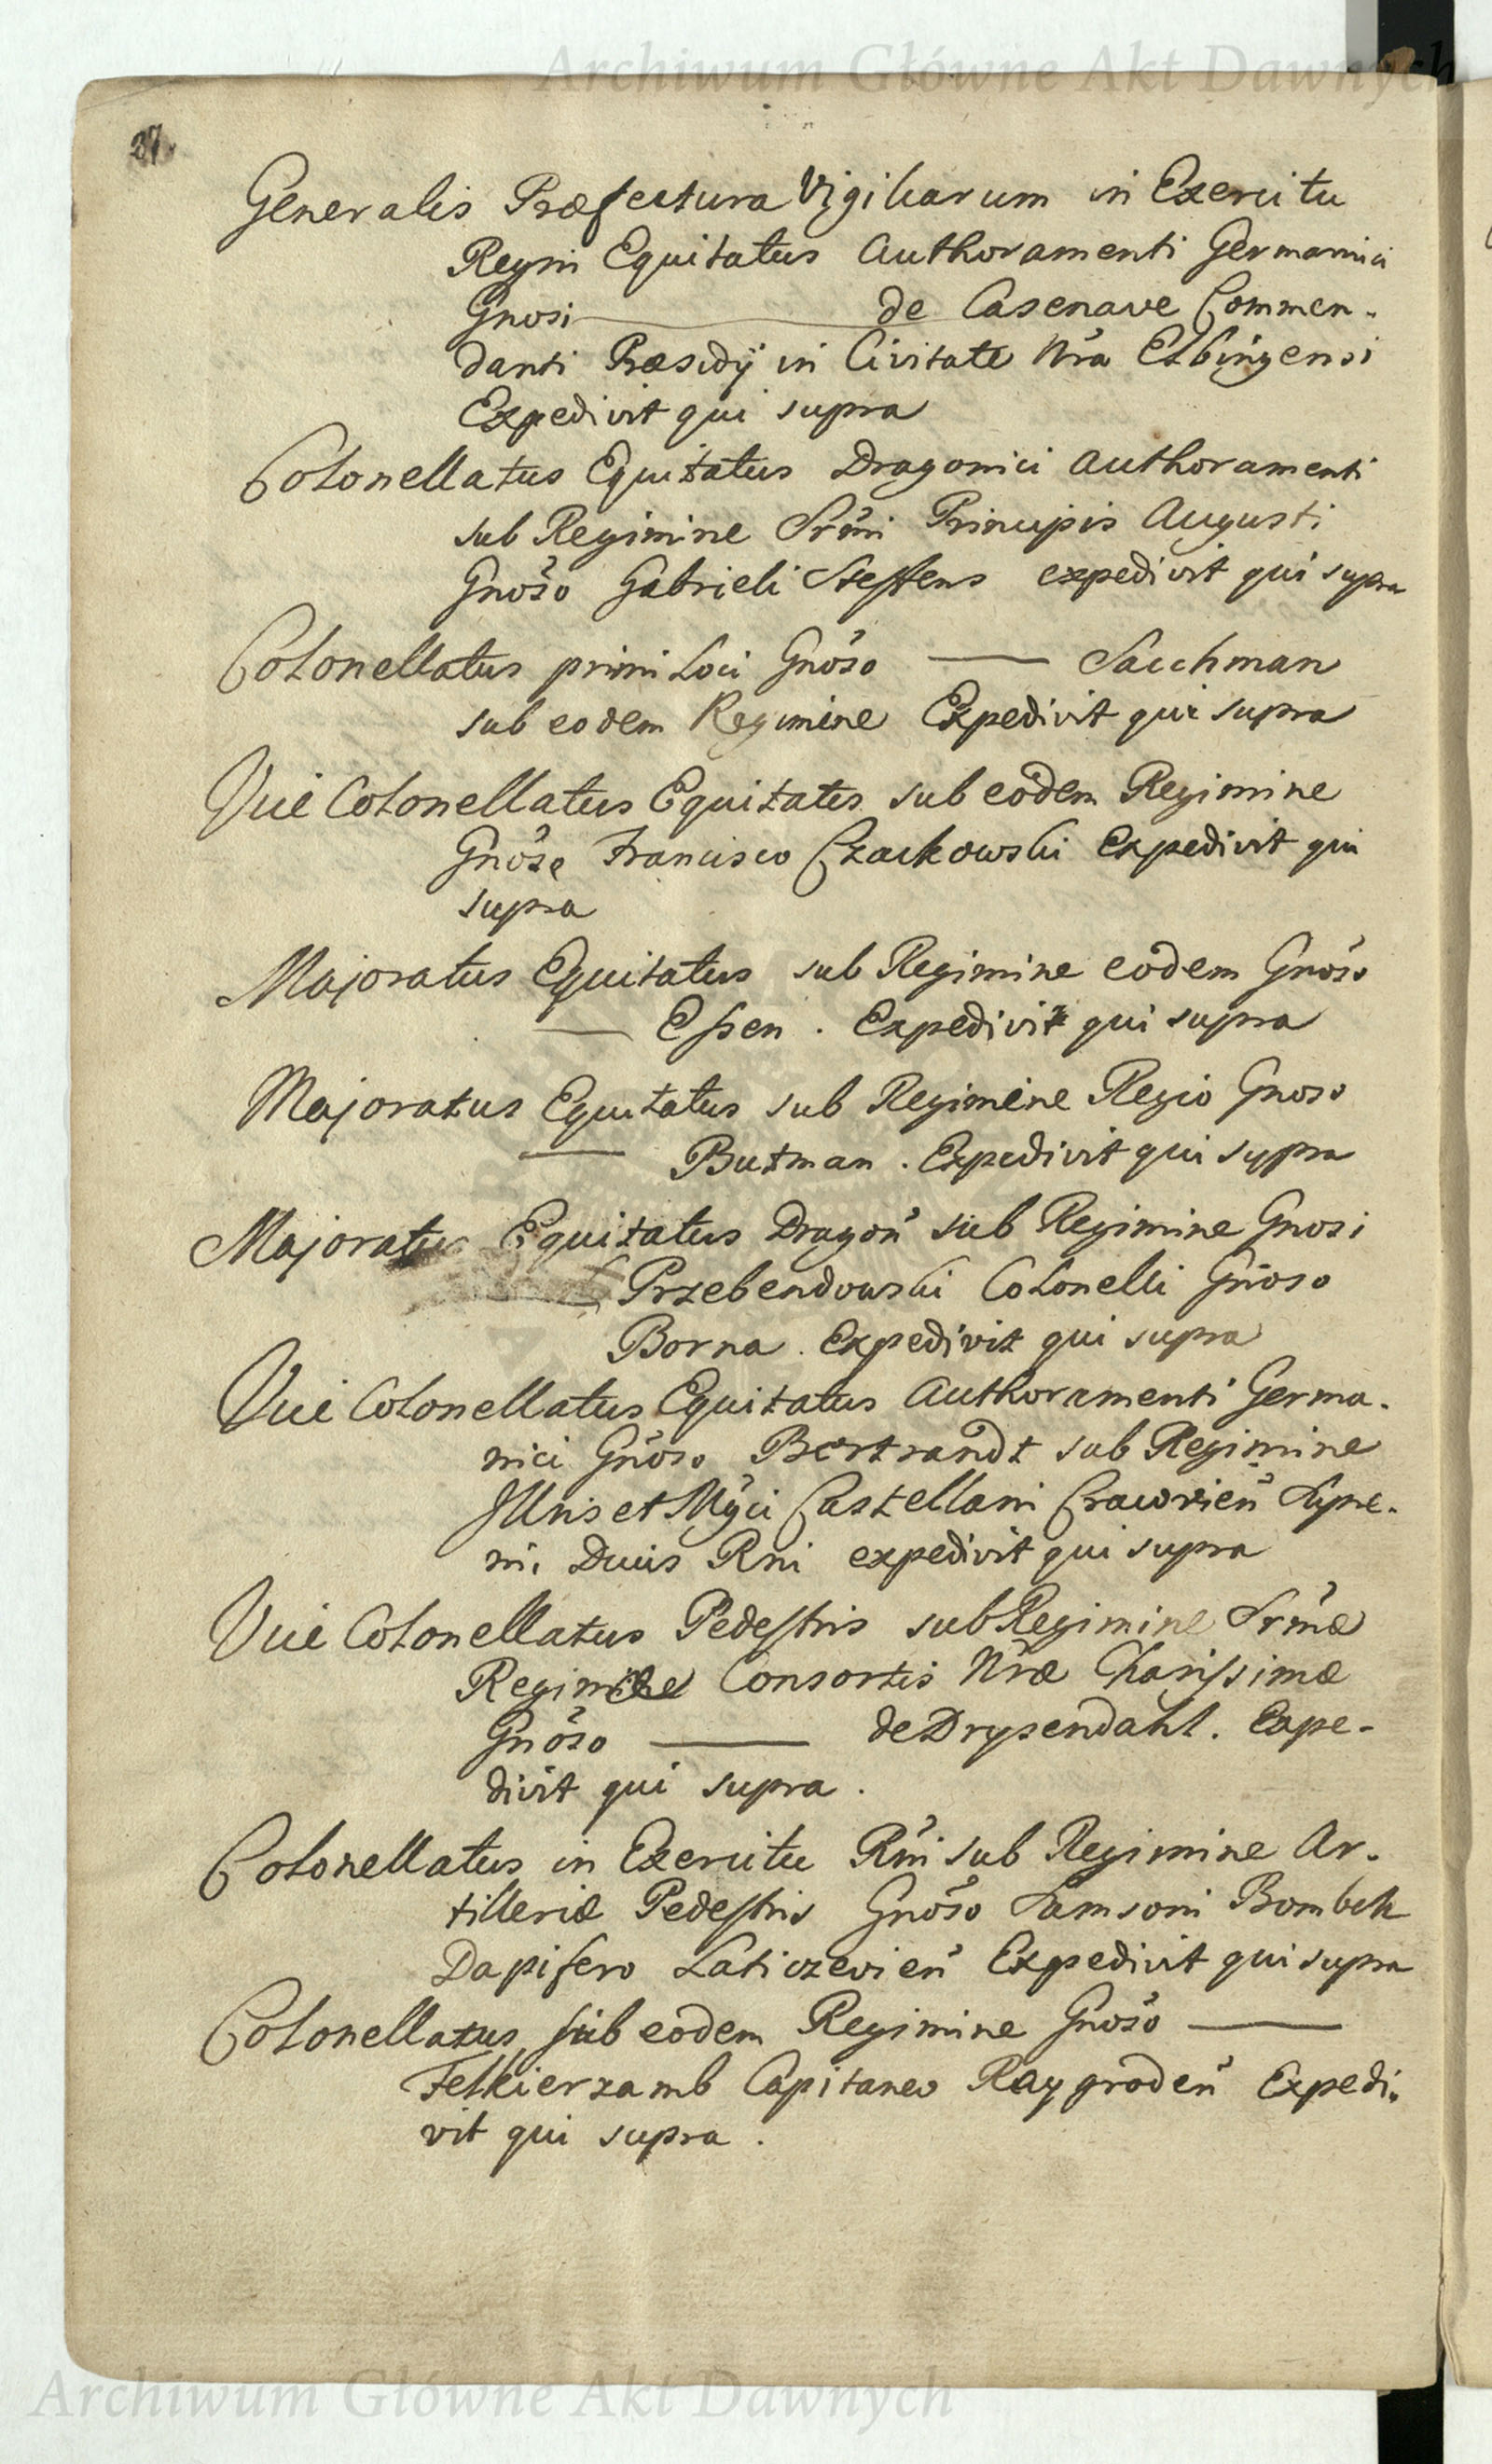 Archiwum Główne Akt Dawnych
37.
Generalis Præfectura Vigiliarum in Exercitu
Regni Equitatus Authoramenti Germanici
Gnosi ——— de Casenave Commen-
danti Præsidÿ in Civitate Nra Elbingensi
Expedivit qui supra
Colonellatus Equitatus Dragonici Authoramenti
sub Regimine Srmi Principis Augusti
Gnoso Gabrieli Steffens expedivit qui supra
Colonellatus primi Loci Gnoso ——— Sacchman
sub eodem Regimine Expedivit qui supra
Vice Colonellatus Equitatus sub eodem Regimine
Gnoso Francisco Czackowski Expedivit qui
supra
Majoratus Equitatus sub Regimine eodem Gnoso
——— Essen. Expedivit qui supra
Majoratus Equitatus sub Regimine Regio Gnoso
——— Butman. Expedivit qui supra
Majoratus Equitatus Dragon sub Regimine Gnosi
Przebendowski Colonelli Gnoso
Borna. Expedivit qui supra
Vice Colonellatus Equitatus Authoramenti Germa-
nici Gnoso Bertrandt sub Regimine
Illris et Mgci Castellani Cracovien Supre-
mi Ducis Rni expedivit qui supra
Vice Colonellatus Pedestris sub Regimine Srmæ
Consortis Nræ Charissimæ
Gnoso ——— de Drysendahl. Expe-
divit qui supra.
Colonellatus in Exercitu Rni sub Regimine Ar-
tilleriæ Pedestris Gnoso Samsoni Bombek
Dapifero Laticzevien Expedivit qui supra
Colonellatus sub eodem Regimine Gnoso ———
Felkierzamb Capitaneo Raygroden Expedi-
vit qui supra.
Archiwum Główne Akt Dawnych